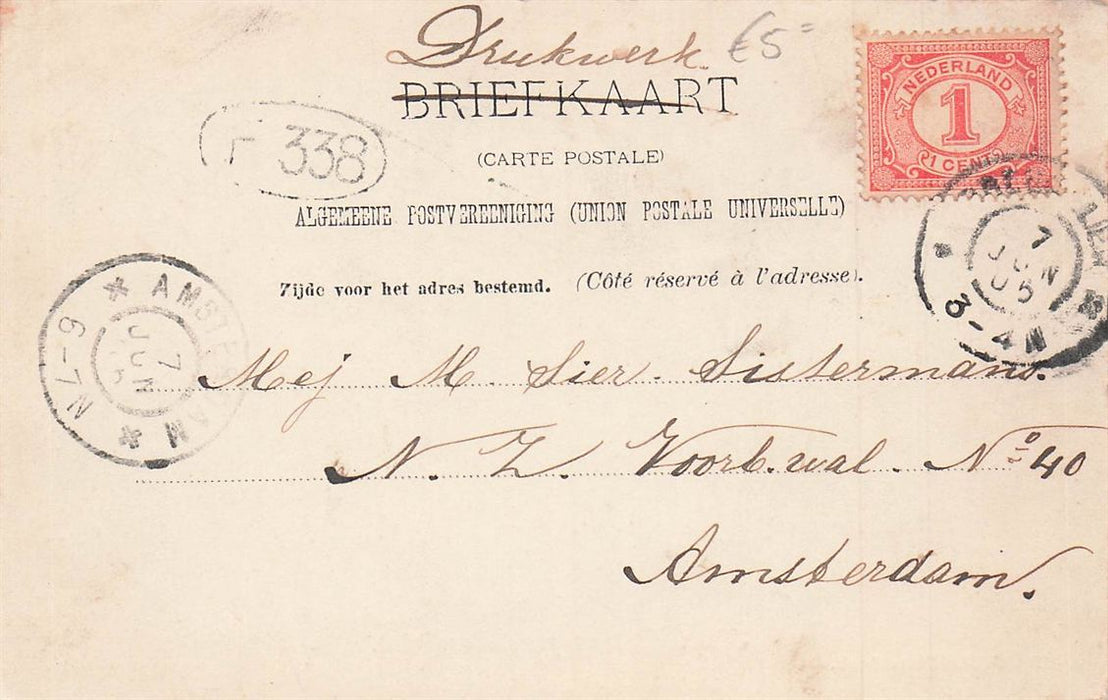 Drukwerk. €5=
BRIEFKAART
(CARTE POSTALE)
ALGEMEENE POSTVEREENIGING (UNION POSTALE UNIVERSELLE)
Zijde voor het adres bestemd. (Côté réservé à l'adresse).
NEDERLAND
1
1 CENT
338
7
JUN
05
3-4N
* AMSTERDAM *
7
JUN
N7-9
Mej M. Sier. Sistermans.
N. Z. Voorb.wal. No 40
Amsterdam.